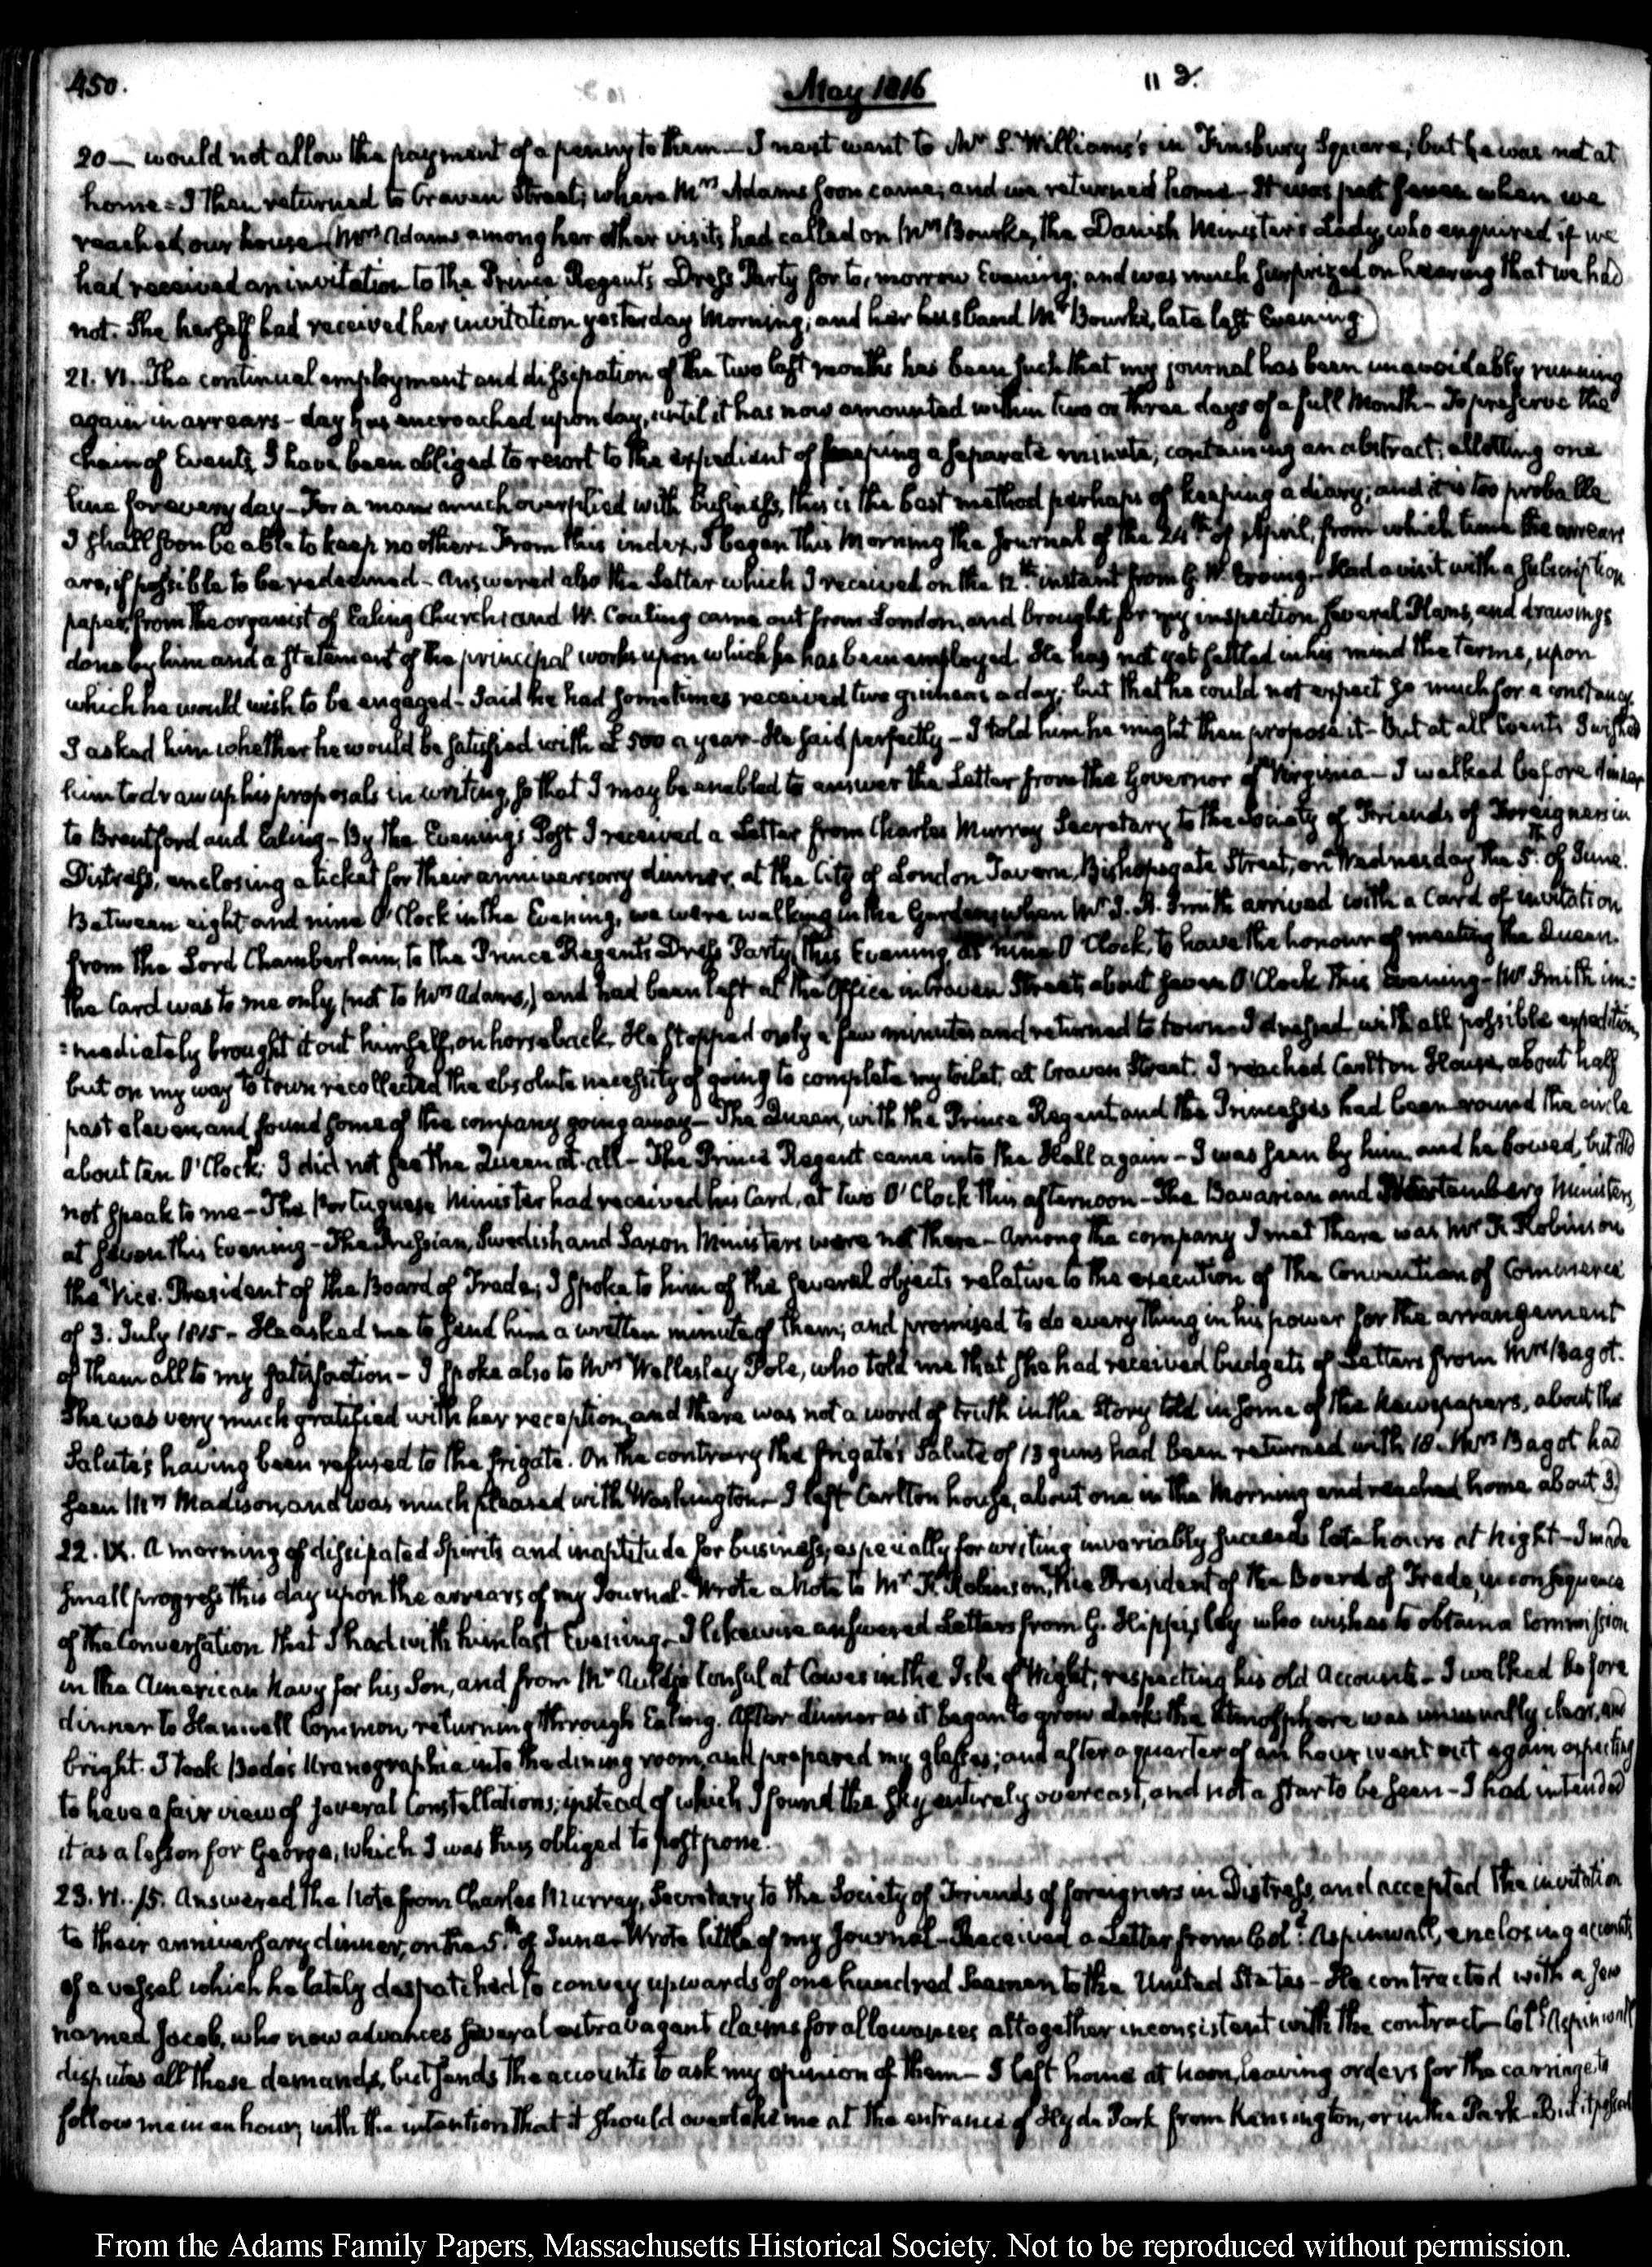 450.
May 1816
112.
20 — would not allow the payment of a penny to them — I next went to Mr S. Williams's in Finsbury Square; but he was not at
home — I then returned to Craven Street; where Mrs Adams soon came; and we returned home — It was past seven when we
reached our house (Mrs Adams among her other visits had called on Mrs Bourke, the Danish Minister's Lady, who enquired if we
had received an invitation to the Prince Regent's Dress Party for to-morrow Evening; and was much surprized on hearing that we had
not. She herself had received her invitation yesterday Morning; and her husband Mr Bourke, late last Evening)
21. VI. The continual employment and dissipation of the two last months has been such that my journal has been unavoidably running
again in arrears — day has encroached upon day, until it has now amounted within two or three days of a full Month — To preserve the
chain of Events, I have been obliged to resort to the expedient of keeping a separate minute; containing an abstract; allotting one
line for every day — For a man much overplied with business, this is the best method perhaps of keeping a diary; and it is too probable
I shall soon be able to keep no other. From this index, I began this Morning the Journal of the 24th of April, from which time the arrears
are, if possible to be redeemed — Answered also the Letter which I received on the 12th instant from G. W. Erving — Had a visit with a subscription
paper, from the organist of Ealing Church; and W. Couling came out from London, and brought for my inspection several Plans, and drawings
done by him and a statement of the principal works upon which he has been employed. He has not yet settled in his mind the terms, upon
which he would wish to be engaged — Said he had sometimes received two guineas a day; but that he could not expect so much for a constancy.
I asked him whether he would be satisfied with £500 a year — He said perfectly — I told him he might then propose it — But at all Events I wished
him to draw up his proposals in writing, so that I may be enabled to answer the Letter from the Governor of Virginia — I walked before dinner
to Brentford and Ealing — By the Evening's Post I received a Letter from Charles Murray Secretary to the Society of Friends of Foreigners in
Distress, enclosing a ticket for their anniversary dinner, at the City of London Tavern, Bishopsgate Street, on Wednesday the 5th of June.
Between eight and nine O'Clock in the Evening, we were walking in the Garden, when Mr J. A. Smith arrived with a Card of invitation
from the Lord Chamberlain, to the Prince Regent's Dress Party, this Evening at nine O'Clock, to have the honour of meeting the Queen.
The Card was to me only (not to Mrs Adams,) and had been left at the Office in Craven Street, about seven O'Clock this Evening — Mr Smith im-
=mediately brought it out himself, on horseback. He stopped only a few minutes and returned to town — I dressed with all possible expedition,
but on my way to town recollected the absolute necessity of going to complete my toilet, at Craven Street. I reached Carlton House, about half
past eleven, and found some of the company going away — The Queen, with the Prince Regent and the Princesses had been round the circle
about ten O'Clock; I did not see the Queen at all — The Prince Regent came into the Hall again — I was seen by him, and he bowed, but did
not speak to me — The Portuguese Minister had received his Card, at two O'Clock this afternoon — The Bavarian and Wurtemberg Ministers,
at seven this Evening — The Prussian, Swedish and Saxon Ministers were not there — Among the company I met there was Mr F. Robinson
the Vice-President of the Board of Trade; I spoke to him of the several objects relative to the execution of the Convention of Commerce
of 3. July 1815 — He asked me to send him a written minute of them; and promised to do every thing in his power for the arrangement
of them all to my satisfaction — I spoke also to Mrs Wellesley Pole, who told me that she had received budgets of Letters from Mrs Bagot.
She was very much gratified with her reception, and there was not a word of truth in the Story told in some of the Newspapers, about the
Salute's having been refused to the frigate. On the contrary the frigate's Salute of 13 guns had been returned with 18. Mrs Bagot had
seen Mrs Madison, and was much pleased with Washington — I left Carlton house, about one in the Morning and reached home about 3.
22. IX. A morning of dissipated Spirits and inaptitude for business, especially for writing invariably succeeds late hours at night — I made
small progress this day upon the arrears of my Journal — Wrote a Note to Mr F. Robinson, Vice President of the Board of Trade, in consequence
of the Conversation that I had with him last Evening — I likewise answered Letters from G. Hippisley who wishes to obtain a Commission
in the American Navy for his Son, and from Mr Auldjo Consul at Cowes in the Isle of Wight, respecting his old Accounts — I walked before
dinner to Hanwell Common, returning through Ealing. After dinner as it began to grow dark the Atmosphere was unusually clear, and
bright. I took Bode's Uranographia into the dining room, and prepared my glasses; and after a quarter of an hour went out again expecting
to have a fair view of several Constellations; instead of which I found the Sky entirely overcast, and not a star to be seen — I had intended
it as a lesson for George, which I was thus obliged to postpone.
23. VI. 15. Answered the Note from Charles Murray, Secretary to the Society of Friends of foreigners in Distress, and accepted the invitation
to their anniversary dinner, on the 5th of June — Wrote little of my Journal — Received a Letter from Coll Aspinwall, enclosing accounts
of a vessel which he lately despatched to convey upwards of one hundred Seamen to the United States — He contracted with a Jew
named Jacob, who now advances several extravagant claims for allowances altogether inconsistent with the contract — Coll Aspinwall
disputes all these demands, but sends the accounts to ask my opinion of them — I left home at noon, leaving orders for the carriage to
follow me in an hour, with the intention that it should overtake me at the entrance of Hyde Park from Kensington, or in the Park — But it passed
From the Adams Family Papers, Massachusetts Historical Society. Not to be reproduced without permission.